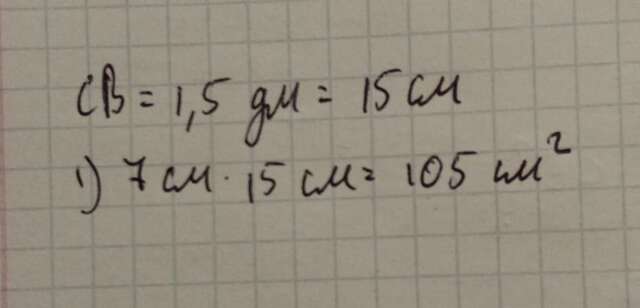 CB = 1,5 дм = 15 см
1) 7 см · 15 см = 105 см²